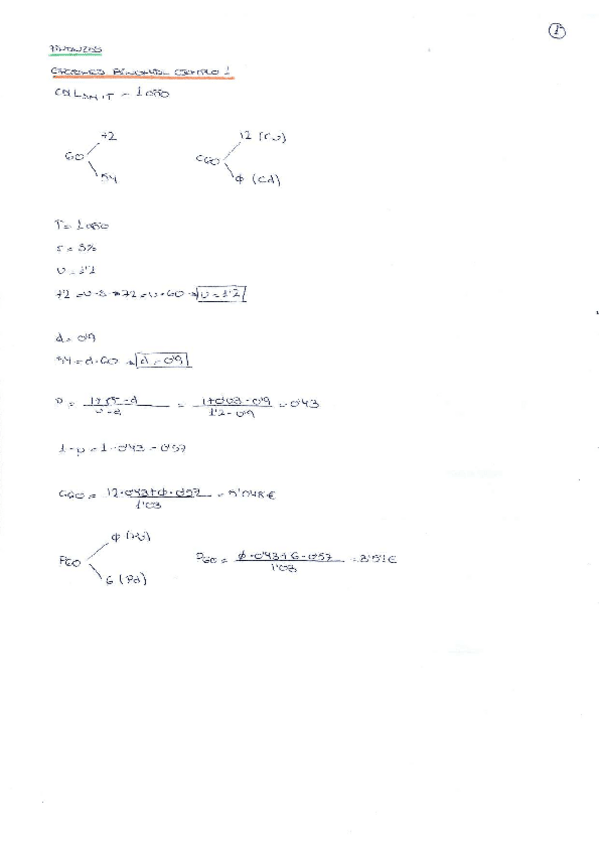 1
FINANZAS
EJERCICIO BINOMIAL EJEMPLO 1
T = 1 año
72
60
54
12 (Cu)
C60
φ (Cd)
T = 1 año
r = 3%
u = 1'2
72 = u · S → 72 = u · 60 → u = 1'2
d = 0'9
54 = d · 60 → d = 0'9
p = 1 + rf - d / u - d = 1 + 0'03 - 0'9 / 1'2 - 0'9 = 0'43
1 - p = 1 - 0'43 = 0'57
C60 = 12 · 0'43 + φ · 0'57 / 1'03 = 5'048 €
φ (Pu)
P60
6 (Pd)
P60 = φ · 0'43 + 6 · 0'57 / 1'03 =